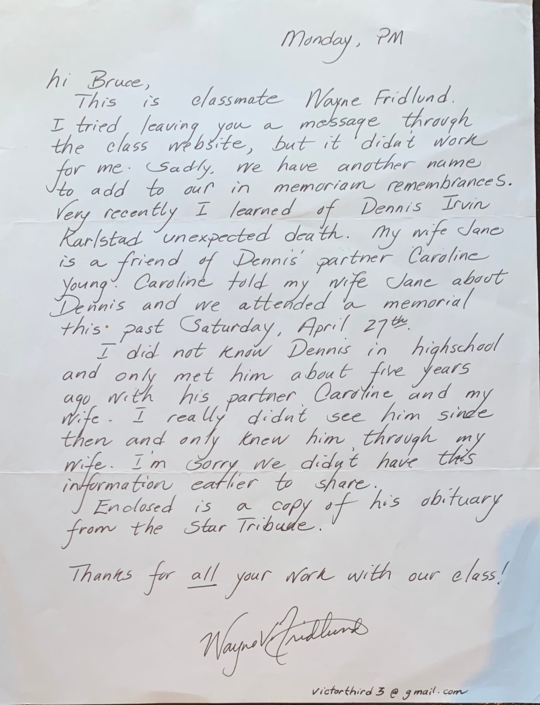 Monday, PM
hi Bruce,
This is classmate Wayne Fridlund.
I tried leaving you a message through
the class website, but it didn't work
for me. Sadly, we have another name
to add to our in memoriam remembrances.
Very recently I learned of Dennis Irvin
Karlstad unexpected death. My wife Jane
is a friend of Dennis' partner Caroline
Young. Caroline told my wife Jane about
Dennis and we attended a memorial
this past Saturday, April 27th.
I did not know Dennis in highschool
and only met him about five years
ago with his partner Caroline and my
wife. I really didn't see him sinde
then and only knew him through my
wife. I'm sorry we didn't have this
information earlier to share.
Enclosed is a copy of his obituary
from the Star Tribune.
Thanks for all your work with our class!
Wayne V. Fridlund
victorthird3@gmail.com